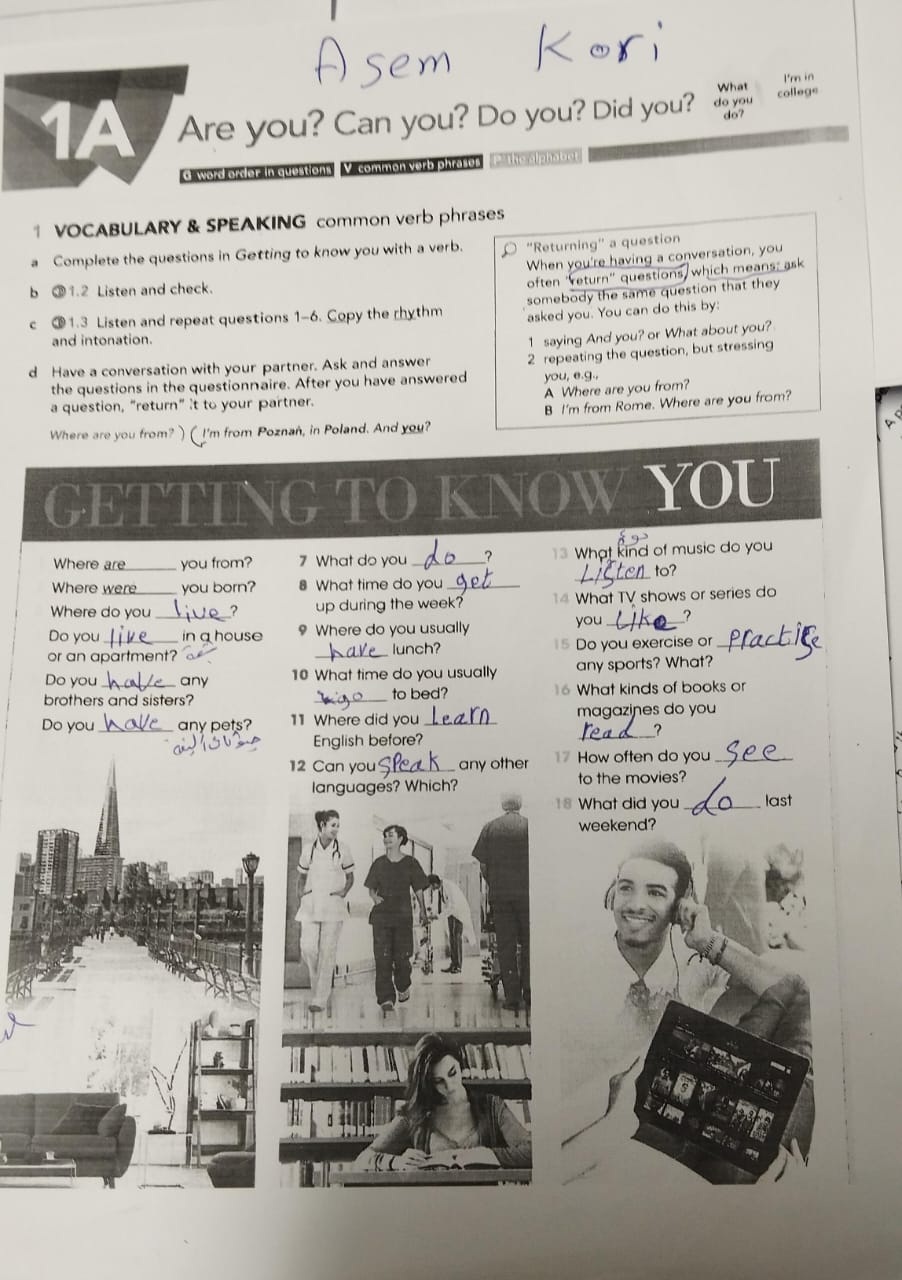 Asem Kori
1A
Are you? Can you? Do you? Did you?
What
do you
do?
I'm in
college
G word order in questions V common verb phrases P the alphabet
1 VOCABULARY & SPEAKING common verb phrases
a Complete the questions in Getting to know you with a verb.
b 1.2 Listen and check.
c 1.3 Listen and repeat questions 1–6. Copy the rhythm
and intonation.
d Have a conversation with your partner. Ask and answer
the questions in the questionnaire. After you have answered
a question, "return" it to your partner.
Where are you from? I'm from Poznań, in Poland. And you?
"Returning" a question
When you're having a conversation, you
often "return" questions, which means: ask
somebody the same question that they
asked you. You can do this by:
1 saying And you? or What about you?
2 repeating the question, but stressing
you, e.g.,
A Where are you from?
B I'm from Rome. Where are you from?
GETTING TO KNOW YOU
Where are you from?
Where were you born?
Where do you live?
Do you live in a house
or an apartment? شقة
Do you have any
brothers and sisters?
Do you have any pets?
7 What do you do?
8 What time do you get
up during the week?
9 Where do you usually
have lunch?
10 What time do you usually
go to bed?
11 Where did you Learn
English before?
12 Can you speak any other
languages? Which?
نوع
13 What kind of music do you
Listen to?
14 What TV shows or series do
you Like?
15 Do you exercise or practise
any sports? What?
16 What kinds of books or
magazines do you
read?
17 How often do you see
to the movies?
18 What did you do last
weekend?